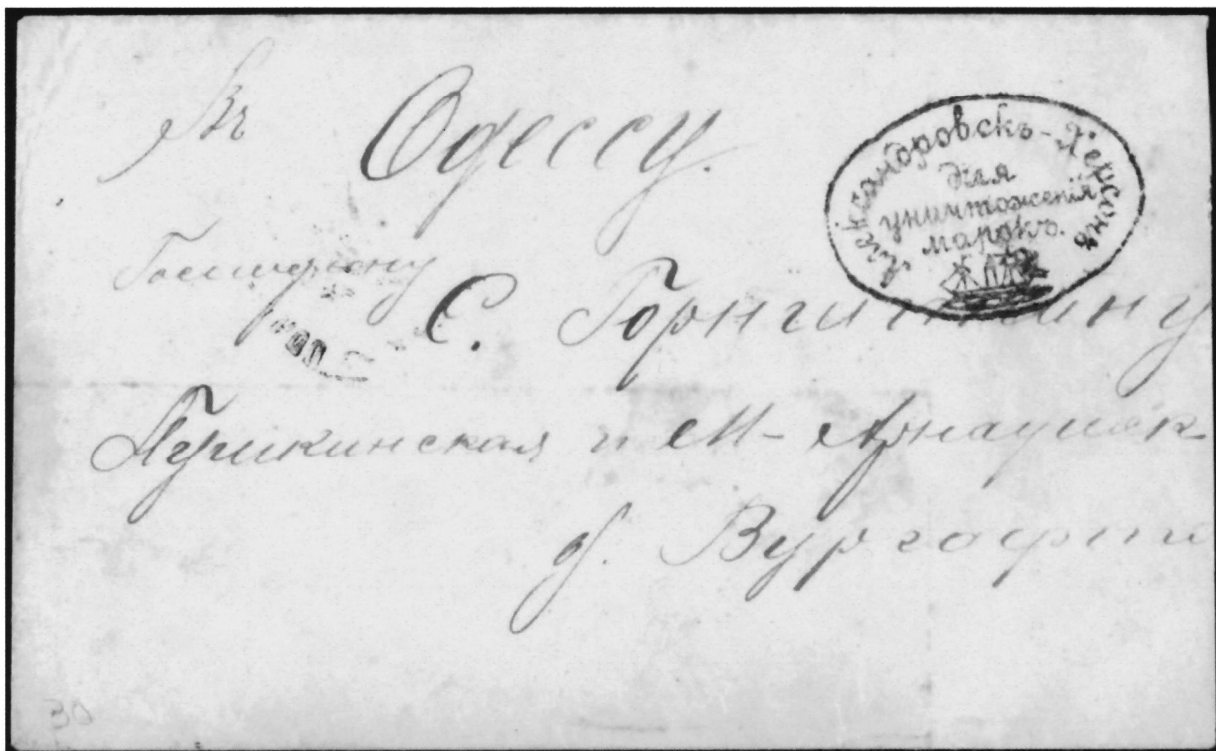 Въ Одессу.
Александровскъ-Херсонъ
Для
уничтоженія
марокъ.
Господину
С.
Пушкинская и М-Арнаутск
д. Вургафта
30